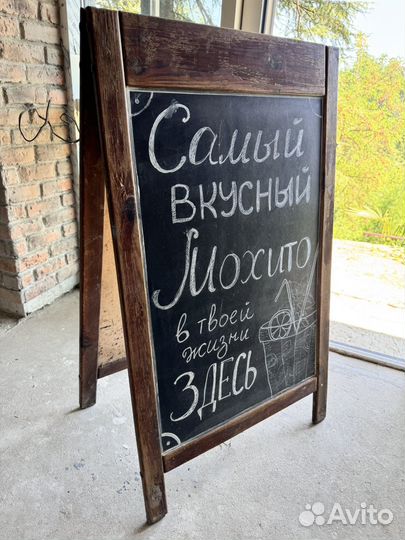 Самый
вкусный
Мохито
в твоей
жизни
ЗДЕСЬ
Avito